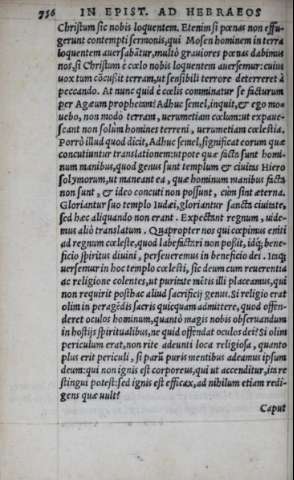 756 IN EPIST. AD HEBRAEOS
Christum sic nobis loquentem. Etenim si pœnas non effu-
gerunt contempti sermonis, qui Mosen hominem in terra
loquentem auersabãtur, multò grauiores pœnas dabimus
nos, si Christum è cœlo nobis loquentem auersemur: cuius
uox tùm cõcussit terram, ut sensibili terrore deterreret à
peccando. At nunc quid è cœlis comminatur se facturum
per Agæum prophetam? Adhuc semel, inquit, & ego mo-
uebo, non modò terram, uerumetiam cœlum: ut expaue-
scant non solùm homines terreni, uerumetiam cœlestia.
Porrò illud quod dicit, Adhuc semel, significat eorum quæ
concutiuntur translationem: utpote quæ facta sunt homi-
num manibus, quod genus sunt templum & ciuitas Hiero
solymorum, ut maneant ea, quæ hominum manibus facta
non sunt, & ideo concuti non possunt, cùm sint æterna.
Gloriantur suo templo Iudæi, gloriantur sancta ciuitate,
sed hæc aliquando non erant. Expectant regnum, uide-
mus aliò translatum. Quapropter nos qui cœpimus eniti
ad regnum cœleste, quod labefactari non possit, idq́; bene-
ficio spiritus diuini, perseueremus in beneficio dei. Itaq́;
uersemur in hoc templo cœlesti, sic deum cum reuerentia
ac religione colentes, ut puritate mẽtis illi placeamus, qui
non requirit posthac aliud sacrificij genus. Si religio erat
olim in peragẽdis sacris quicquam admittere, quod offen-
deret oculos hominum, quantò magis nobis obseruandum
in hostijs spiritualibus, ne quid offendat oculos dei? Si olim
periculum erat, non rite adeunti loca religiosa, quanto
plus erit periculi, si parũ puris mentibus adeamus ipsum
deum: qui non ignis est corporeus, qui ut accenditur, ita re
stingui potest: sed ignis est efficax, ad nihilum etiam redi-
gens quæ uult?
Caput